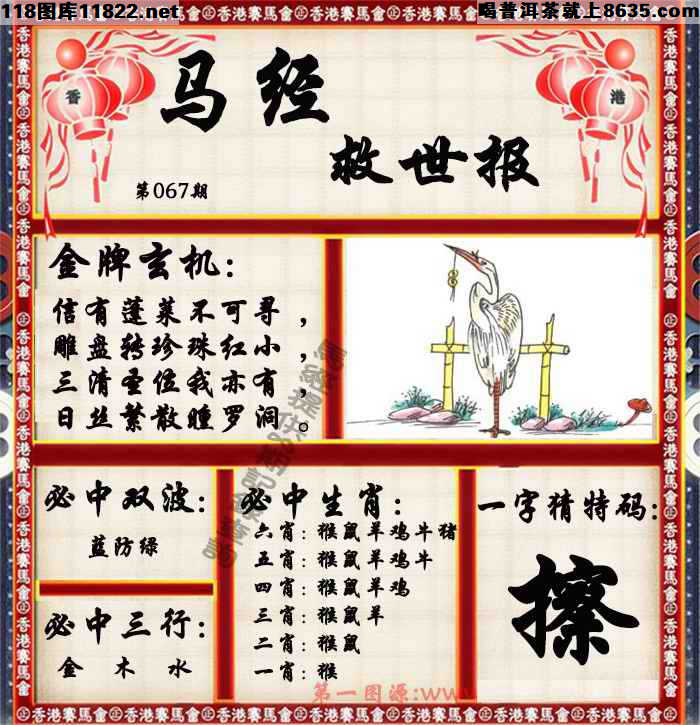 118图库11822.net
喝普洱茶就上8635.com
香
港
马经
救世报
第067期
金牌玄机：
信有蓬莱不可寻，
雕盘转珍珠红小，
三清圣位我亦有，
日丝繁散曈罗洞。
必中双波：
蓝防绿
必中三行：
金 木 水
必中生肖：
六肖：猴鼠羊鸡牛猪
五肖：猴鼠羊鸡牛
四肖：猴鼠羊鸡
三肖：猴鼠羊
二肖：猴鼠
一肖：猴
一字猜特码：
擦
第一图源:www
香港賽馬會